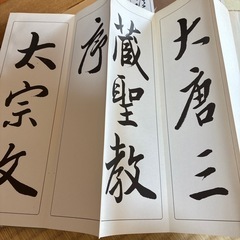 大唐三
蔵聖教
序
太宗文